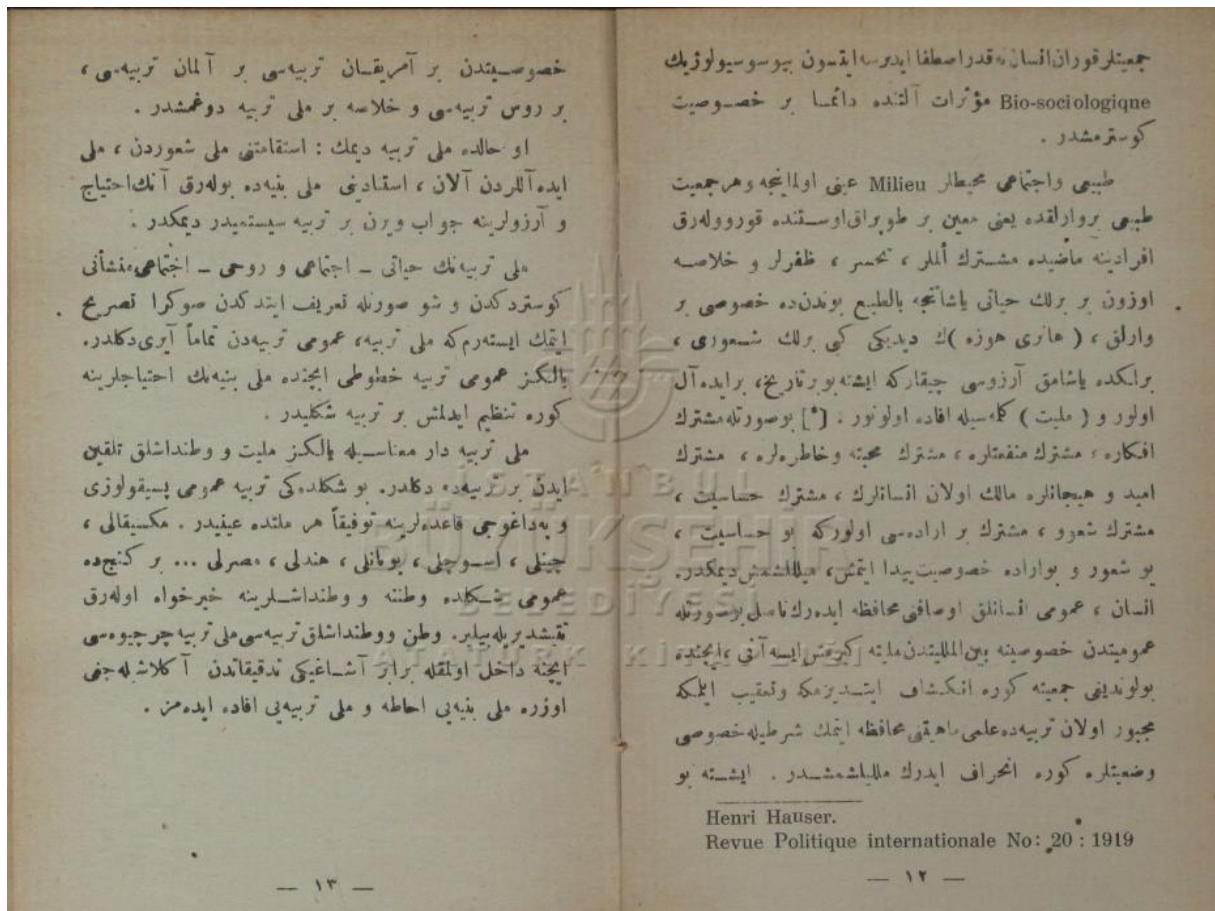 جمعیتلر قوران انسان نه قدر اصطفا ایدیرسه ایدسون بیوسوسیولوژیك
Bio-sociologiqne مؤثرات آلتنده دائما بر خصوصیت
كوسترمشدر .
طبیعی واجتماعی محیطلر Milieu عینی اولماینجه وهر جمعیت
طبیعی بروارلقده یعنی معین بر طوپراق اوستنده قوروله رق
افرادینه ماضیده مشترك ألملر ، تحسر ، ظفرلر و خلاصه
اوزون بر برلك حیاتی یاشاتنجه بالطبع بوندن ده خصوصی بر
وارلق ، ( هانری هوزه )ك دیدیكی كبی برلك شعوری ،
برلكده یاشامق آرزوسی چیقاركه ایشته بو بر تاریخ ، بر ایده آل
اولور و ( ملیت ) كلمه سیله افاده اولونور . [*] بوصورتله مشترك
افكاره ، مشترك منفعتلره ، مشترك محیته وخاطره لره ، مشترك
امید و هیجانلره مالك اولان انسانلرك ، مشترك حساسیت ،
مشترك شعور و ، مشترك بر اراده سی اولوركه بو حساسیت ،
بو شعور و بواراده خصوصیت پیدا ایتمش ، میللشمش دیمكدر.
انسان ، عمومی انسانلق اوصافنی محافظه ایده رك ناصل بوصورتله
عمومیتدن خصوصیته بین المللیتدن ملیته كیرمش ایسه آنی ، ایچنده
بولوندیغی جمعیته كوره انكشاف ایتدیرمكه وتعقیب ایتمكه
مجبور اولان تربیه ده علمی ماهیتنی محافظه ایتمك شرطیله خصوصی
وضعیتلره كوره انحراف ایدرك مللیلشمشدر . ایشته بو
Henri Hauser.
Revue Politique internationale No: 20 : 1919
— ١٢ —
خصوصیتدن بر آمریقان تربیه سی بر آلمان تربیه سی ،
بر روس تربیه سی و خلاصه بر ملی تربیه دوغمشدر .
او حالده ملی تربیه دیمك : استقامتنی ملی شعوردن ، ملی
ایده آللردن آلان ، استنادینی ملی بنیه ده بوله رق آنك احتیاج
و آرزولرینه جواب ویرن بر تربیه سیستمیدر دیمكدر .
ملی تربیه نك حیاتی ـ اجتماعی و روحی ـ اجتماعی منشأنی
كوستردكدن و شو صورتله تعریف ایتدكدن صوكرا تصریح
ایتمك ایسته رم كه ملی تربیه ، عمومی تربیه دن تماماً آیری دكلدر.
یالكز عمومی تربیه خطوطی ایچنده ملی بنیه نك احتیاجلرینه
كوره تنظیم ایدلمش بر تربیه شكلیدر .
ملی تربیه دار معناسیله یالكز ملیت و وطنداشلق تلقین
ایدن بر تربیه ده دكلدر. بو شكلده كی تربیه عمومی پسیقولوژی
و پداغوجی قاعده لرینه توفیقاً هر ملتده عینیدر . مكسیقالی ،
چینلی ، اسوچلی ، یونانلی ، هندلی ، مصرلی ... بر كنج ده
عمومی شكلده وطننه و وطنداشلرینه خیرخواه اوله رق
یتیشدیریله بیلیر. وطن و وطنداشلق تربیه سی ملی تربیه چرچیوه سی
ایچنه داخل اولمقله برابر آشاغیكی تدقیقاتدن آكلاشیله جغی
اوزره ملی بنیه یی احاطه و ملی تربیه یی افاده ایده مز .
— ١٣ —
İSTANBUL
BÜYÜKŞEHİR
BELEDİYESİ
ATATÜRK KİTAPLIĞI